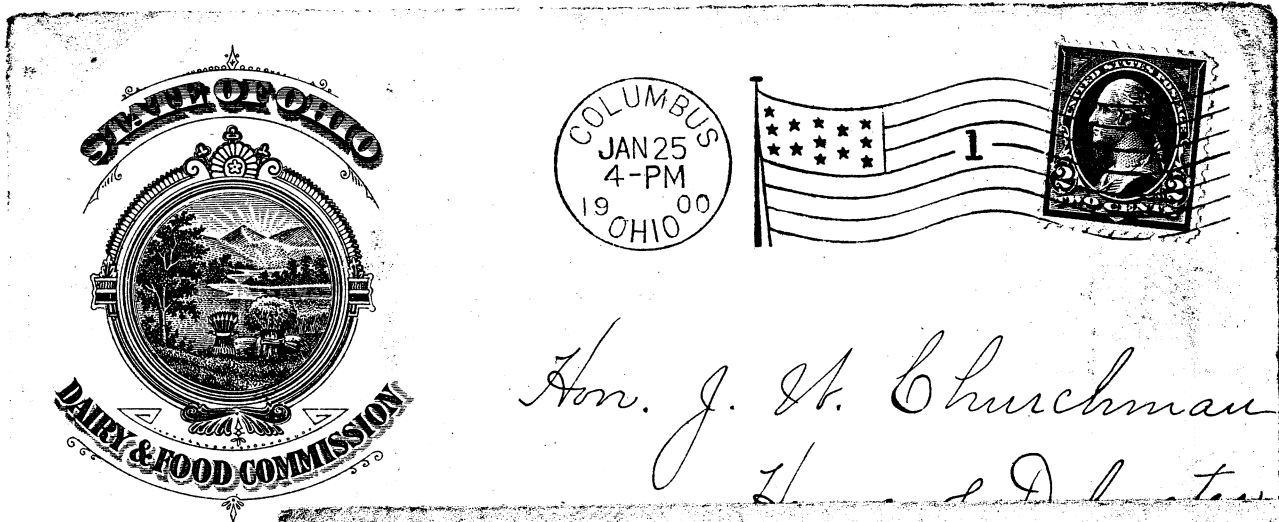 STATE OF OHIO
DAIRY & FOOD COMMISSION
COLUMBUS
JAN 25
4-PM
19 00
OHIO
1
UNITED STATES POSTAGE
2 2
TWO CENTS
Hon. J. W. Churchman